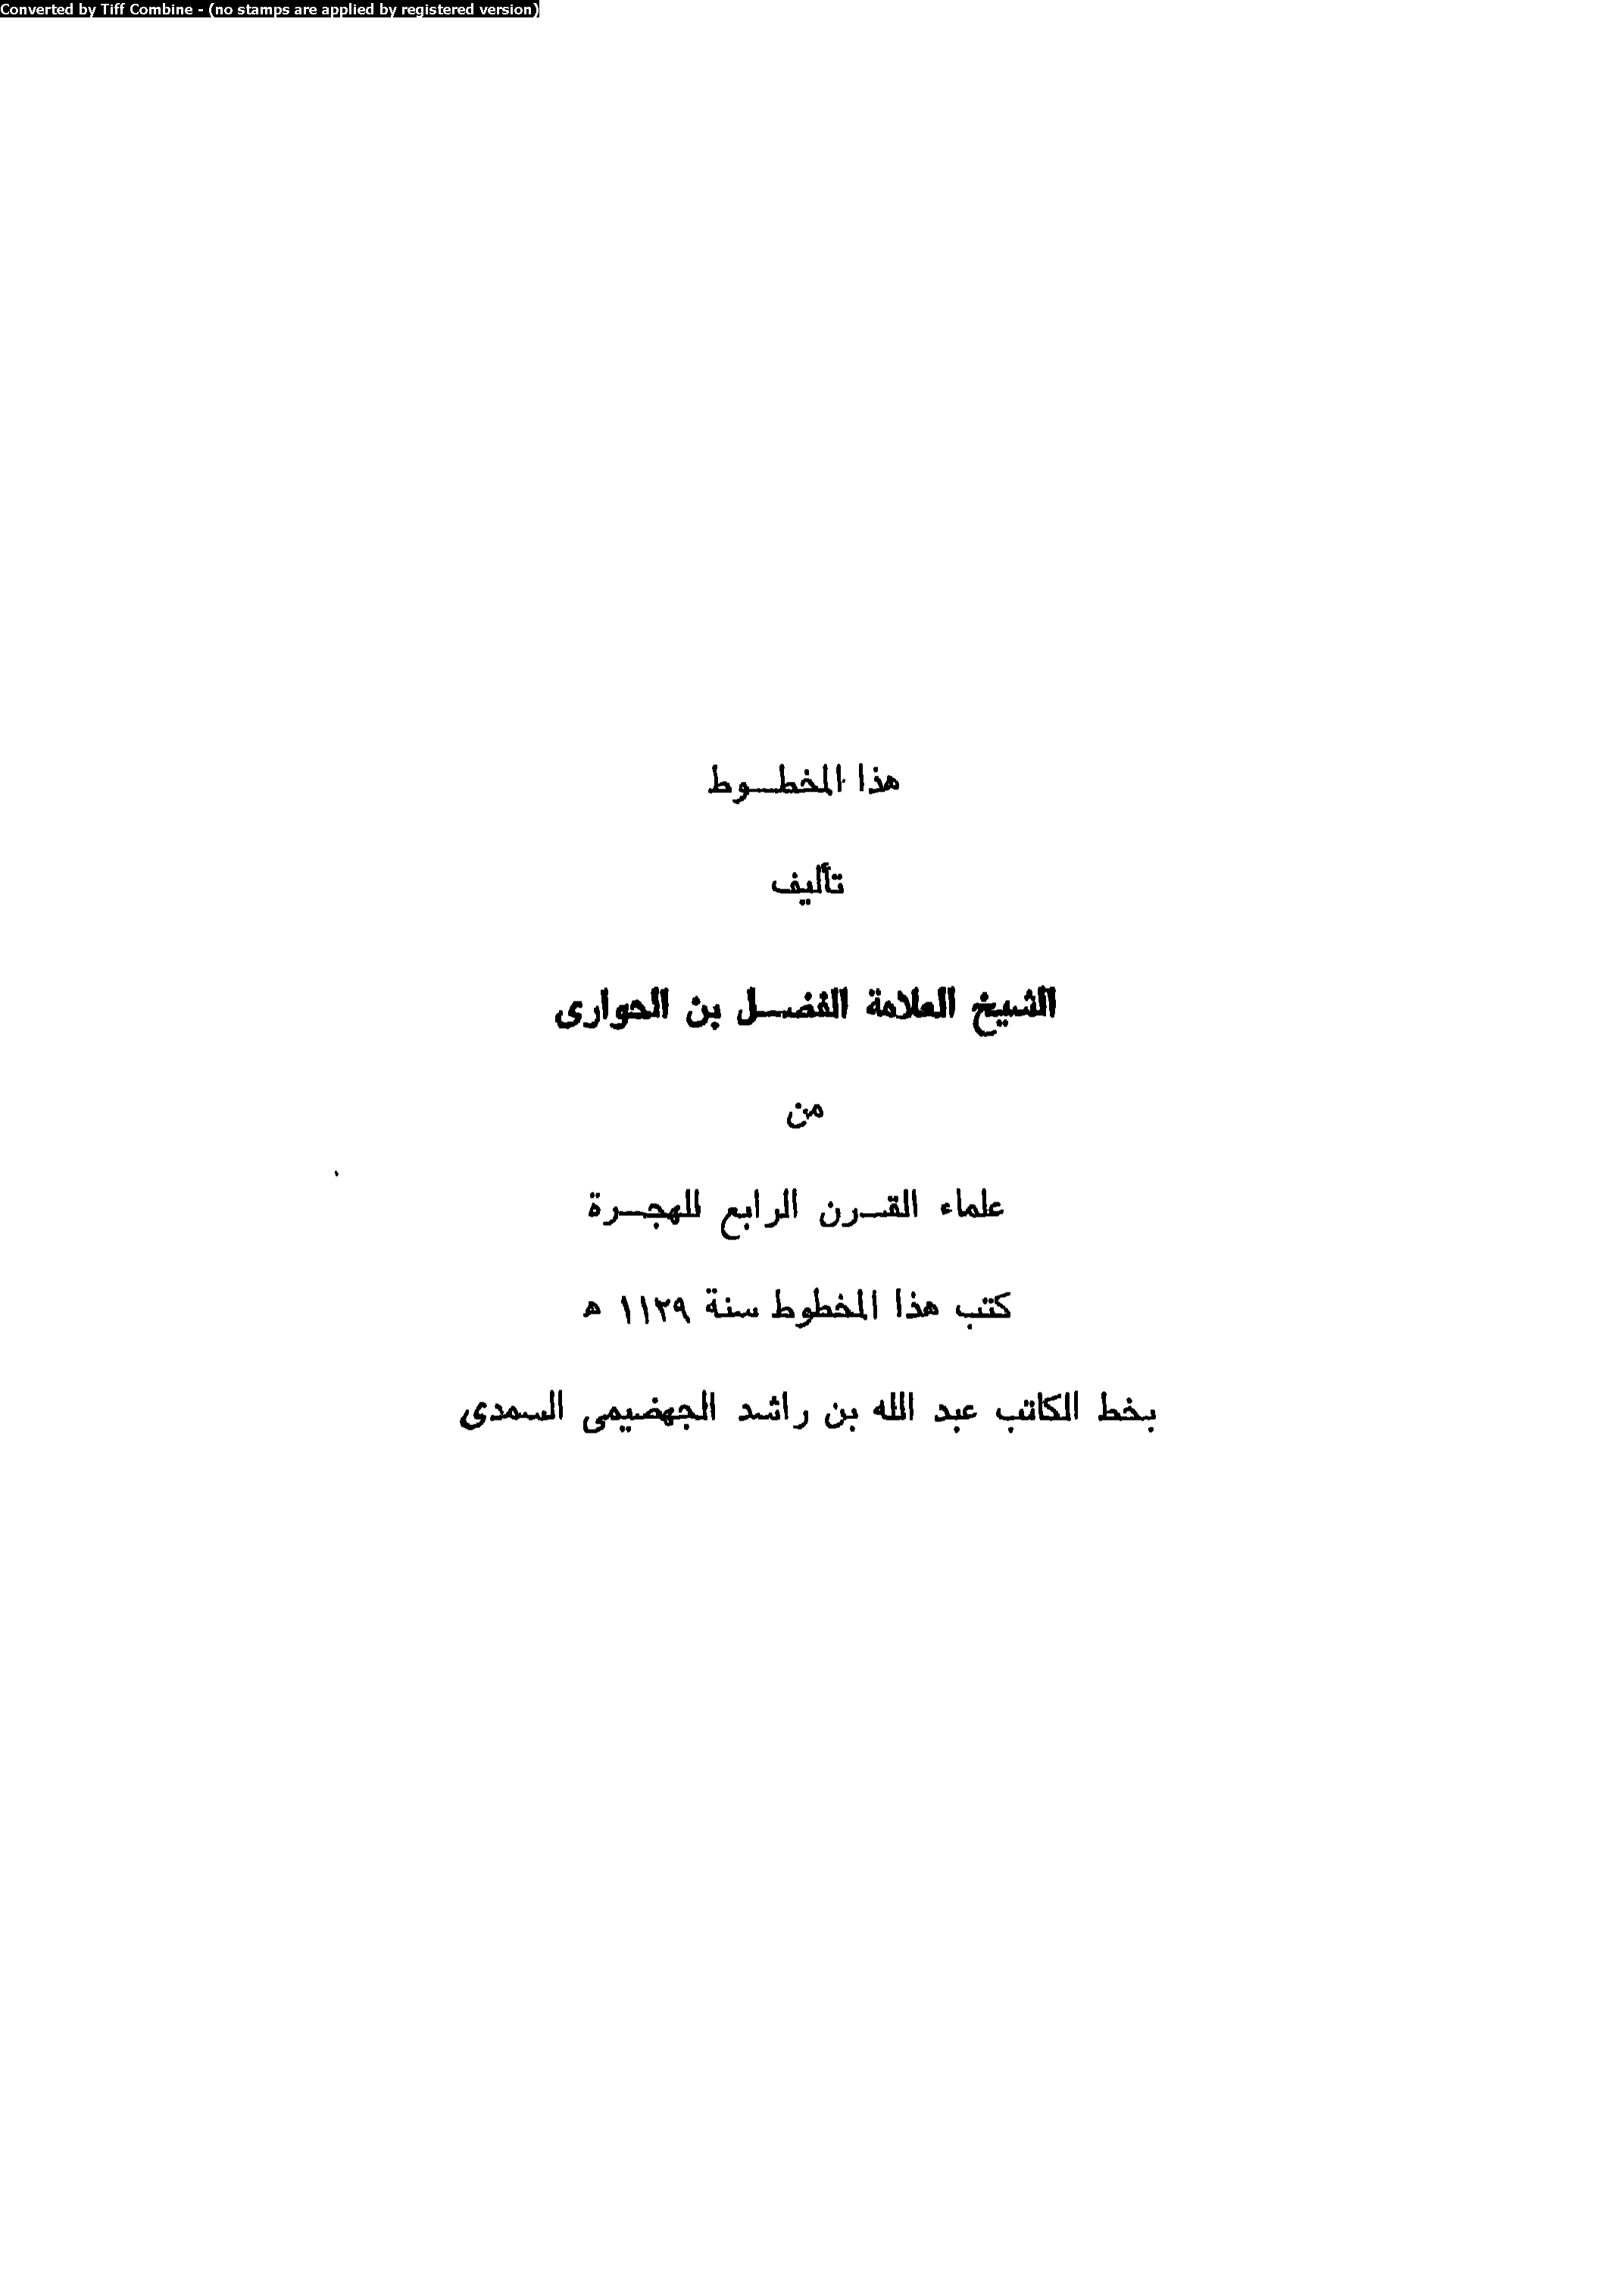 Converted by Tiff Combine - (no stamps are applied by registered version)
هذا المخطوط
تأليف
الشيخ العلامة الفضل بن الحوارى
من
علماء القرن الرابع للهجرة
كتب هذا المخطوط سنة ١١٢٩ ه
بخط الكاتب عبد الله بن راشد الجهضيمى السمدى